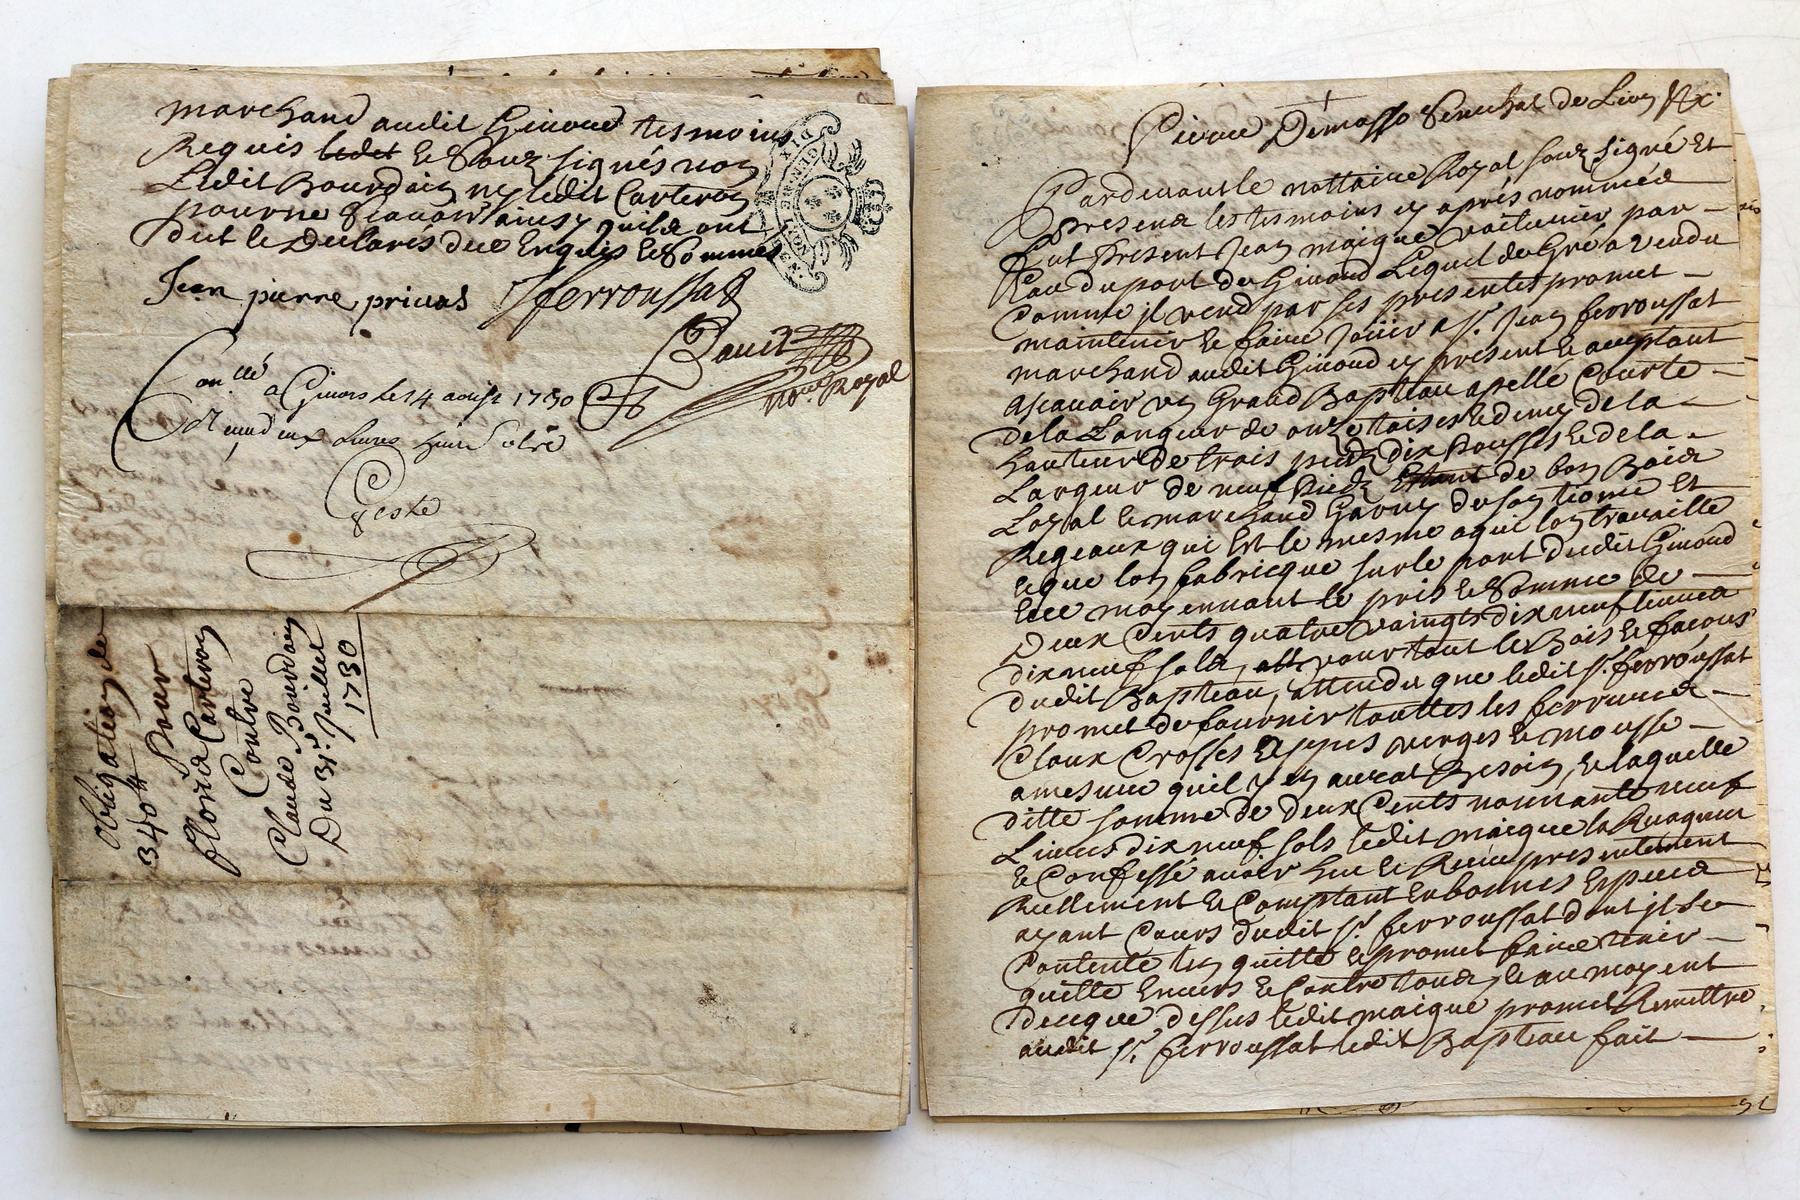 marchand audit Givord tesmoins
Requis ledit & Souz signés non
Ledit Bourdain ny ledit Carteron
pour ne Scavoir ainsy quils ont
dit et Declarés due Enquis & Sommés
Jean pierre privas Jferroussat
not. Royal
Con.llé a Givors le 14 aoust 1730
Reçu deux livres
Geste
GEN. DE LYON
Obligation de
340 # Pour
floris Carteron
Contre
Claude Bourdain
Du 31e Juillet
1730
Pierre Demasso Senechal de Lion &c.
Pardevant le nottaire Royal souz signé Et
presens les tesmoins cy aprés nommés
fut Present Jean maigue voiturier par
Eau du port de Givord Lequel de Gré a vendu
Comme jl vend par ses presentes promet
maintenir & faire Joüir a Sr. Jean ferroussat
marchand audit Givord cy present & aceptant
ascavoir un Grand Bapteau apellé Courte
de la Longeur de onze toises & demy de la
hauteur de trois pieds dix Pousses & de la
Largeur de neuf Pieds Estant de bon Bois
Loyal & marchand Garny de son tiome Et
Regeaux qui Est le mesme a qui lon travaille
& que lon fabricque sur le port dudit Givord
& ce moyennant le prix & Somme de
Deux Cents quatre vaingts dix neuf livres
dix neuf sols pour tout les Bois & facons
dudit Bapteau, attendu que ledit Sr. ferroussat
promet de fournir touttes les ferrures
Cloux Crosses Eppes verges & mousse
a mesure quil y en aurat Besoin, & laquelle
ditte somme de deux Cents nonnante neuf
Livres dix neuf sols ledit maigue la Ruaqueur
& Confessé avoir hue & Receu presentement
Reellement & Comptant En bonnes Especes
ayant Cours dudit Sr. ferroussat dont jl se
Contente len quitte & promet faire tenir
quitte Envers & Contre tous, & au moyent
de ce que dessus ledit maigue promet Remettre
audit Sr. ferroussat ledit Bapteau fait